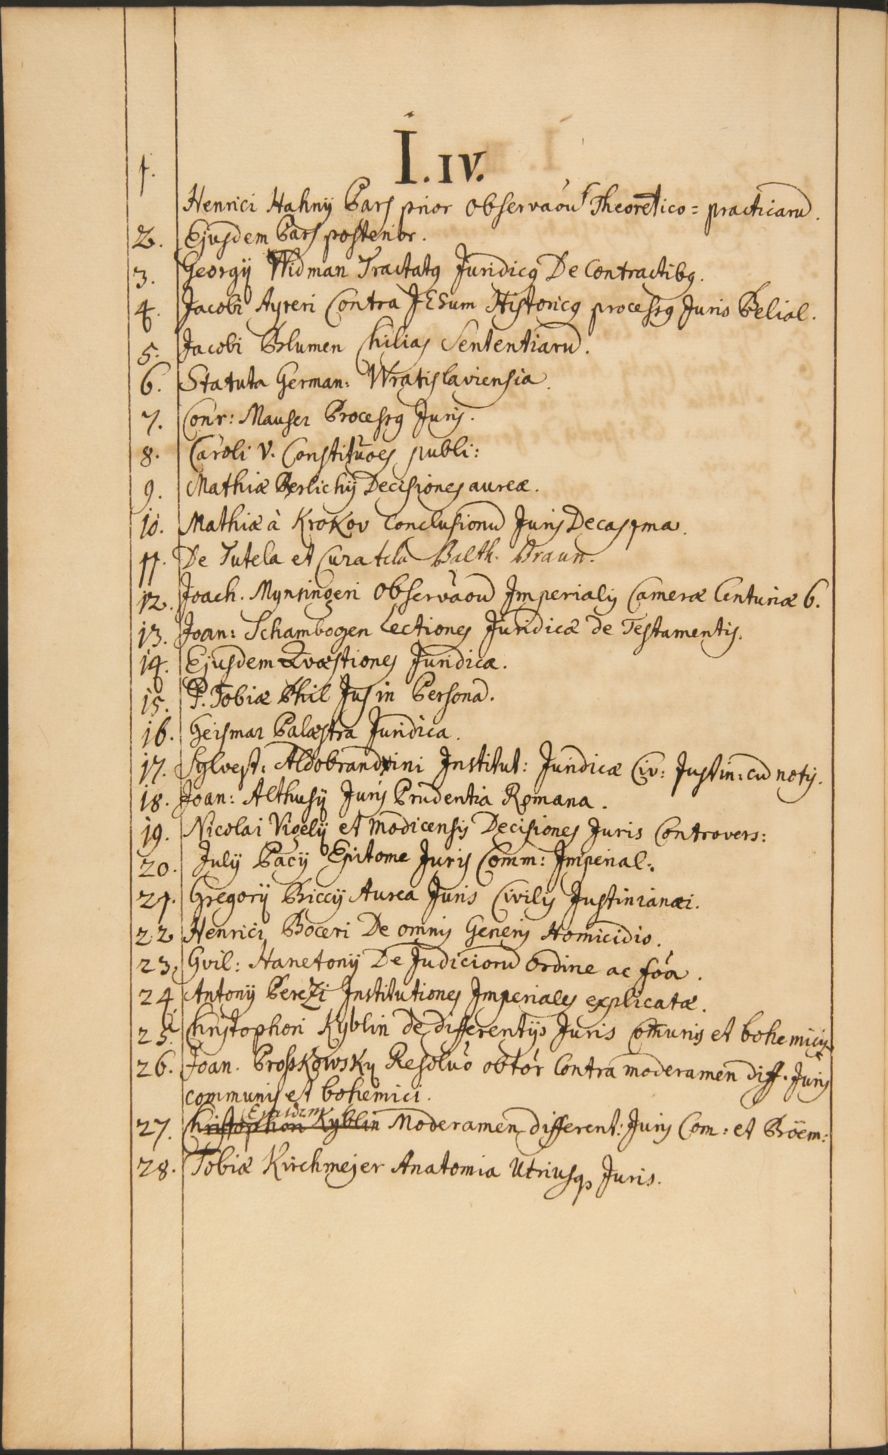 I. IV.
1. Henrici Hahnij Pars prior observaōū Theoretico = practicarū.
2. Ejusdem Pars posterior.
3. Georgij Widman Tractatꝯ Juridicꝯ De Contractibꝯ.
4. Jacobi Ayreri Contra JESum Historicꝯ processꝯ Juris Belial.
5. Jacobi Blumen Chilias Sententiarū.
6. Statuta German: Wratislaviensia.
7. Conr: Mauser Processꝯ Juris.
8. Caroli V. Constituōes publi:
9. Mathiæ Berlichij Decisiones aureæ.
10. Mathiæ à Krokov Conclusionū Juris Decas 1ma.
11. De Tutela et Curatela Balth. Braun.
12. Joach. Mynsingeri Observaōū Imperialis Cameræ Centuriæ 6.
13. Joan: Schambogen Lectiones Juridicæ de Testamentis.
14. Ejusdem Qvæstiones Juridicæ.
15. P. Tobiæ Phil Jus in Personā.
16. Geismar Palæstra Juridica.
17. Sylvest: Aldobrandini Institut: Juridicæ Civ: Justin: cū notis.
18. Joan: Althusij Juris Prudentia Romana.
19. Nicolai Vigelij et Modicensis Decisiones Juris Controvers:
20. Julij Pacij Epitome Juris Comm: Imperial:
21. Gregorij Biccij Aurea Juris Civilis Justinianæi.
22. Henrici Boceri De omnis Generis Homicidio.
23. Gvil: Hanetonij De Judiciorū Ordine ac fōa.
24. Antonij Perezi Institutiones Imperiales explicatæ.
25. Christophori Kyblin de differentijs Juris Com̄unis et bohemicis
26. Joan. Proskowsky Resoluō obtōr Contra moderamen diff. Juris
communis et bohemici.
27. Christophori Kyblin Ejusdem Moderamen different: Juris Com: et Böem:
28. Tobiæ Kirchmejer Anatomia Utriusqꝫ Juris.